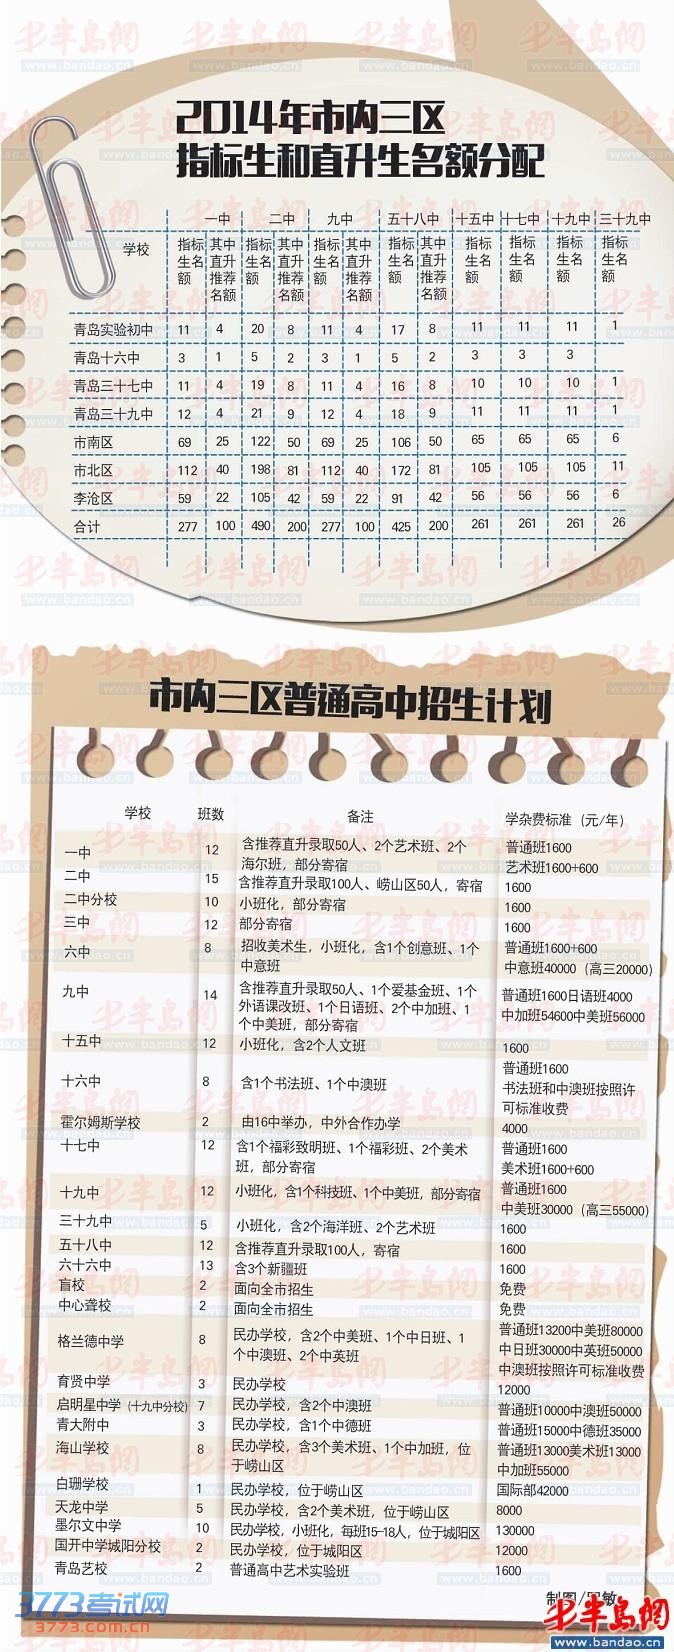 2014年市内三区
指标生和直升生名额分配
学校 一中 二中 九中 五十八中 十五中 十七中 十九中 三十九中
指标生名额 其中直升推荐名额 指标生名额 其中直升推荐名额 指标生名额 其中直升推荐名额 指标生名额 其中直升推荐名额 指标生名额 指标生名额 指标生名额 指标生名额
青岛实验初中 11 4 20 8 11 4 17 8 11 11 11 1
青岛十六中 3 1 5 2 3 1 5 2 3 3 3
青岛三十七中 11 4 19 8 11 4 16 8 10 10 10 1
青岛三十九中 12 4 21 9 12 4 18 9 11 11 11 1
市南区 69 25 122 50 69 25 106 50 65 65 65 6
市北区 112 40 198 81 112 40 172 81 105 105 105 11
李沧区 59 22 105 42 59 22 91 42 56 56 56 6
合计 277 100 490 200 277 100 425 200 261 261 261 26
市内三区普通高中招生计划
学校 班数 备注 学杂费标准（元/年）
一中 12 含推荐直升录取50人、2个艺术班、2个
海尔班，部分寄宿
普通班1600
艺术班1600+600
二中 15 含推荐直升录取100人、崂山区50人，寄宿 1600
二中分校 10 小班化，部分寄宿 1600
三中 12 部分寄宿 1600
六中 8 招收美术生，小班化，含1个创意班、1个
中意班
普通班1600+600
中意班40000（高三20000）
九中 14 含推荐直升录取50人、1个爱基金班、1个
外语课改班、1个日语班、2个中加班、1
个中美班，部分寄宿
普通班1600日语班4000
中加班54600中美班56000
十五中 12 小班化，含2个人文班 1600
十六中 8 含1个书法班、1个中澳班
普通班1600
书法班和中澳班按照许
可标准收费
霍尔姆斯学校 2 由16中举办，中外合作办学 4000
十七中 12 含1个福彩致明班、1个福彩班、2个美术
班，部分寄宿
普通班1600
美术班1600+600
十九中 12 小班化，含1个科技班、1个中美班，部分寄宿
普通班1600
中美班30000（高三55000）
三十九中 5 小班化，含2个海洋班、2个艺术班 1600
五十八中 12 含推荐直升录取100人，寄宿 1600
六十六中 13 含3个新疆班 1600
盲校 2 面向全市招生 免费
中心聋校 2 面向全市招生 免费
格兰德中学 8 民办学校，含2个中美班、1个中日班、1
个中澳班、2个中英班
普通班13200中美班80000
中日班30000中英班50000
中澳班按照许可标准收费
育贤中学 3 民办学校 12000
启明星中学（十九中分校） 7 民办学校，含2个中澳班 普通班10000中澳班50000
青大附中 3 民办学校，含1个中德班 普通班15000中德班35000
海山学校 8 民办学校，含3个美术班、1个中加班，位
于崂山区
普通班13000美术班13000
中加班55000
白珊学校 1 民办学校，位于崂山区 国际部42000
天龙中学 5 民办学校，含2个美术班，位于崂山区 8000
墨尔文中学 10 民办学校，小班化，每班15-18人，位于城阳区 130000
国开中学城阳分校 2 民办学校，位于城阳区 12000
青岛艺校 2 普通高中艺术实验班 1600
制图/
3773考试网
3773.com.cn
半岛网
www.bandao.cn